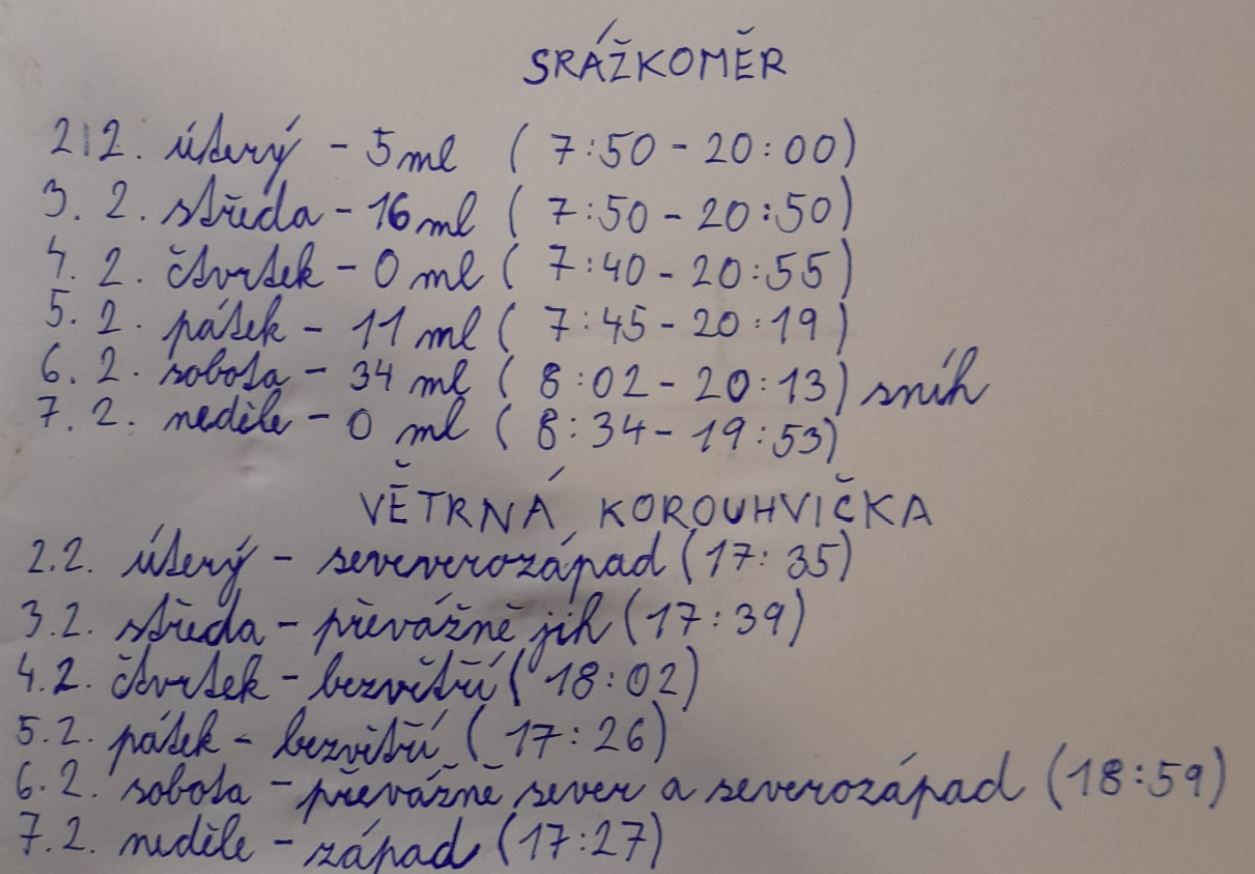 SRÁŽKOMĚR
2.2. úterý - 5 ml (7:50 - 20:00)
3. 2. středa - 16 ml (7:50 - 20:50)
4. 2. čtvrtek - 0 ml (7:40 - 20:55)
5. 2. pátek - 11 ml (7:45 - 20:19)
6. 2. sobota - 34 ml (8:02 - 20:13) sníh
7. 2. neděle - 0 ml (8:34 - 19:53)
VĚTRNÁ KOROUHVIČKA
2.2. úterý - seveverozápad (17:35)
3.2. středa - převážně jih (17:39)
4.2. čtvrtek - bezvětří (18:02)
5.2. pátek - bezvětří (17:26)
6.2. sobota - převážně sever a severozápad (18:59)
7.2. neděle - západ (17:27)